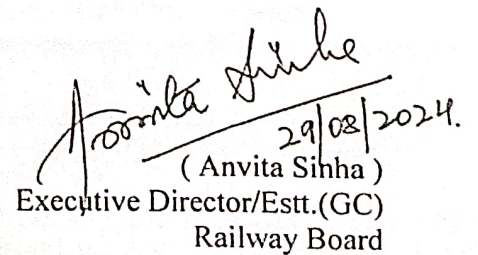 Anvita Sinha
29/08/2024.
( Anvita Sinha )
Executive Director/Estt.(GC)
Railway Board